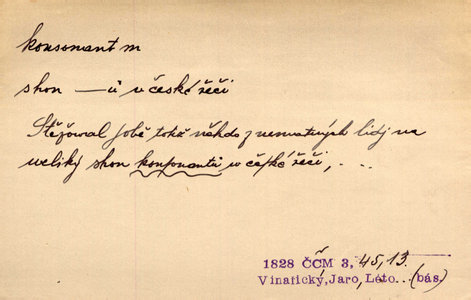 konsonant m
shon —ů v české řeči
Stěžowal sobě totě někdo z nenvatených lidj na
weliký shon konsonantů w česské řeči, . . .
1828 ČČM 3, 45, 13.
Vinařický, Jaro, Léto...(bás.)